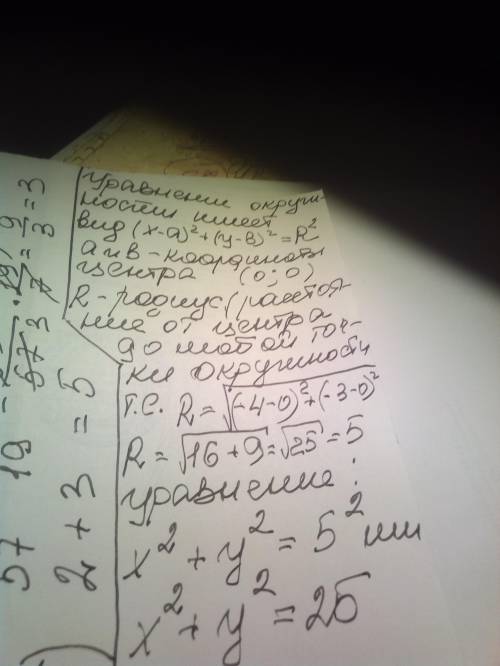 уравнение окруж-
ности имеет
вид (x-a)²+(y-в)²=R²
а и в - координаты
центра (0; 0)
R - радиус (расстоя-
ние от центра
до любой точ-
ки окружности
т.е. R = √(-4-0)²+(-3-0)²
R = √16+9 = √25 = 5
уравнение:
x² + y² = 5² или
x² + y² = 25
57 19
= 9/3 = 3
2 + 3 = 5